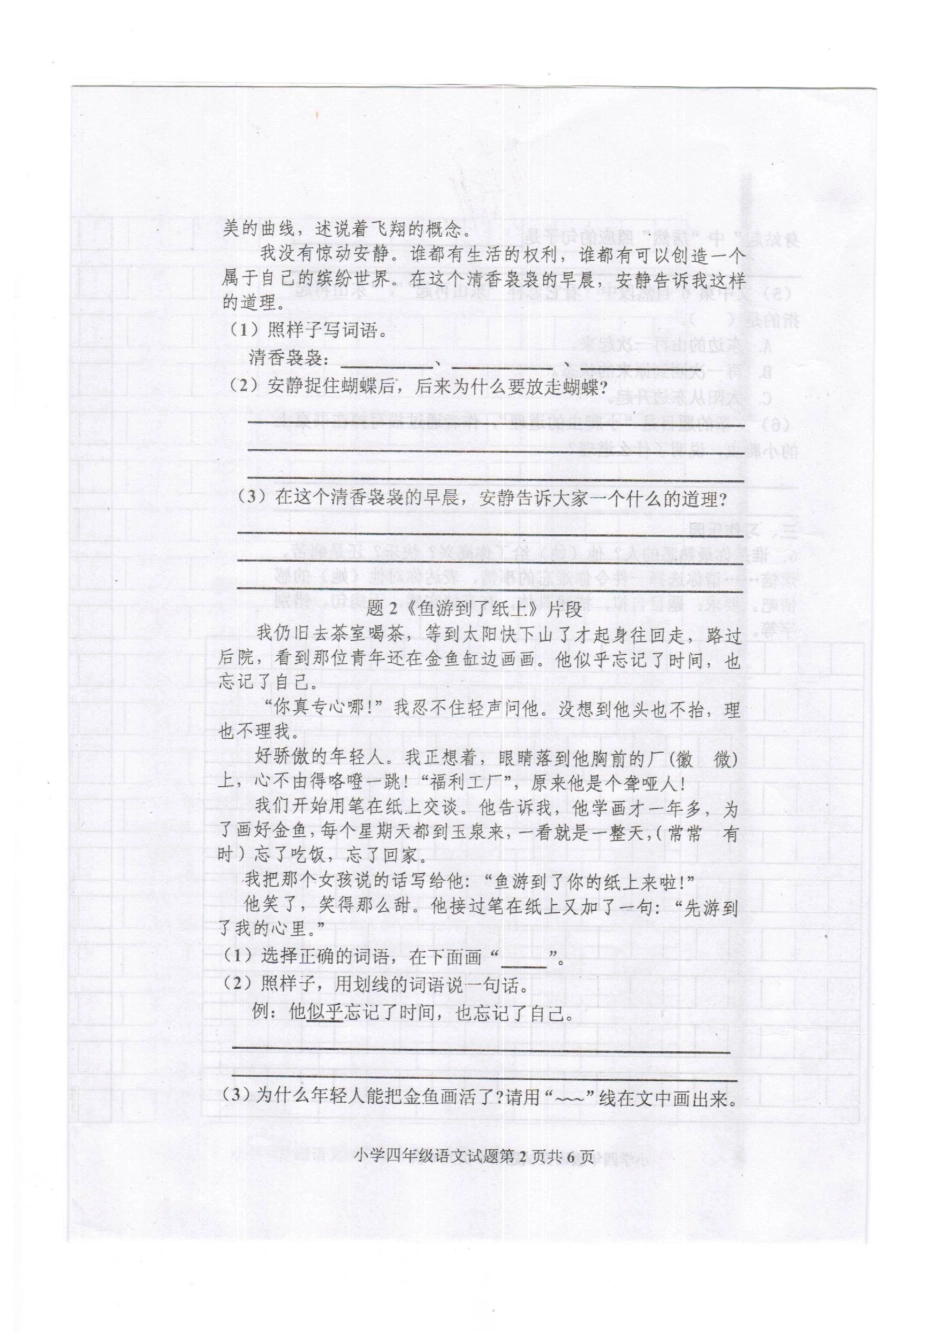 美的曲线，述说着飞翔的概念。
我没有惊动安静。谁都有生活的权利，谁都有可以创造一个
属于自己的缤纷世界。在这个清香袅袅的早晨，安静告诉我这样
的道理。
(1)照样子写词语。
清香袅袅：________、________、________
(2)安静捉住蝴蝶后，后来为什么要放走蝴蝶?
(3)在这个清香袅袅的早晨，安静告诉大家一个什么的道理?
题2《鱼游到了纸上》片段
我仍旧去茶室喝茶，等到太阳快下山了才起身往回走，路过
后院，看到那位青年还在金鱼缸边画画。他似乎忘记了时间，也
忘记了自己。
“你真专心哪！”我忍不住轻声问他。没想到他头也不抬，理
也不理我。
好骄傲的年轻人。我正想着，眼睛落到他胸前的厂(徽　微)
上，心不由得咯噔一跳！“福利工厂”，原来他是个聋哑人！
我们开始用笔在纸上交谈。他告诉我，他学画才一年多，为
了画好金鱼，每个星期天都到玉泉来，一看就是一整天，(常常　有
时)忘了吃饭，忘了回家。
我把那个女孩说的话写给他：“鱼游到了你的纸上来啦！”
他笑了，笑得那么甜。他接过笔在纸上又加了一句：“先游到
了我的心里。”
(1)选择正确的词语，在下面画“____”。
(2)照样子，用划线的词语说一句话。
例：他似乎忘记了时间，也忘记了自己。
(3)为什么年轻人能把金鱼画活了?请用“~~~”线在文中画出来。
小学四年级语文试题第2页共6页